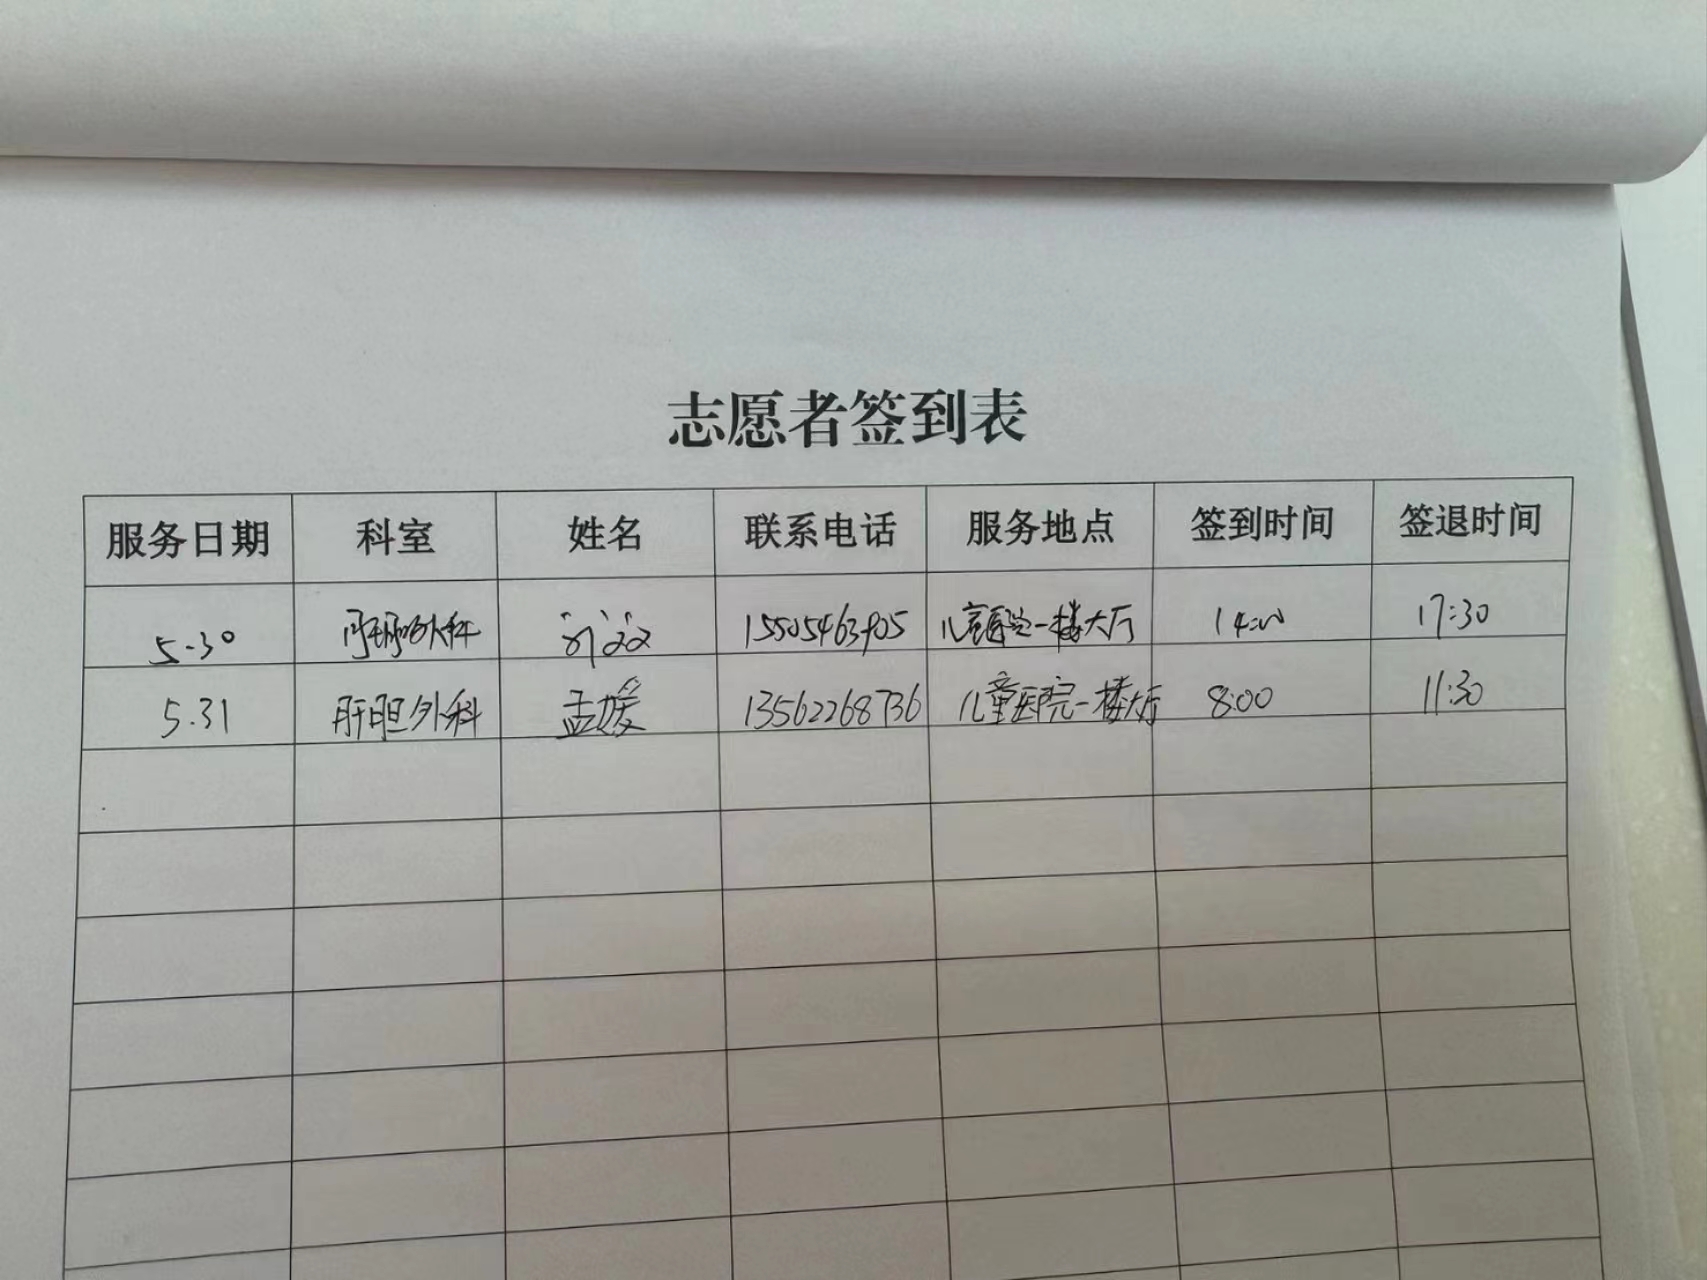 志愿者签到表
服务日期 科室 姓名 联系电话 服务地点 签到时间 签退时间
5.30 肝胆外科 15505463905 儿童医院一楼大厅 14:00 17:30
5.31 肝胆外科 孟媛 13562268736 儿童医院一楼大厅 8:00 11:30